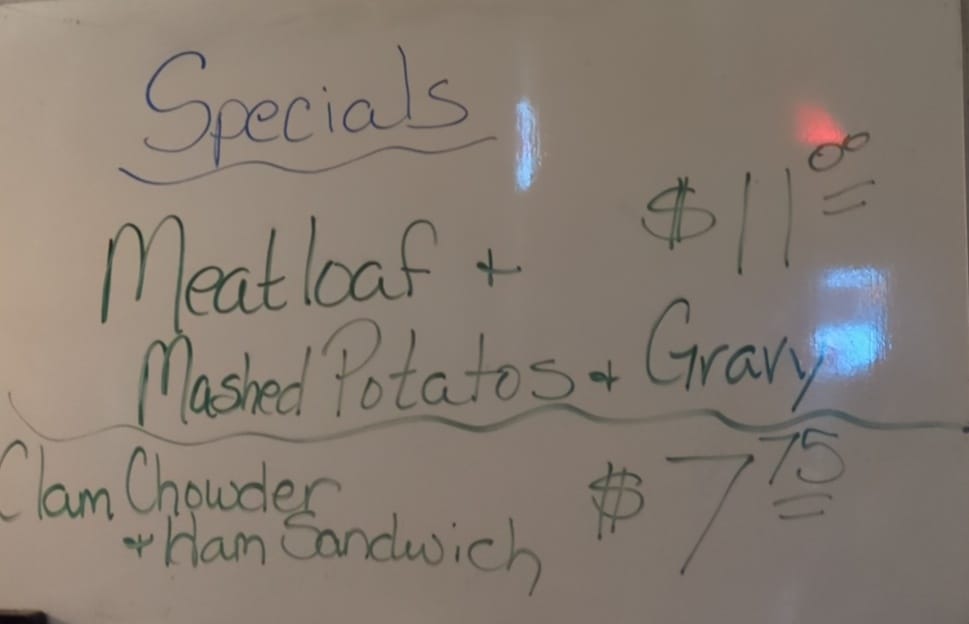 Specials
Meatloaf + $11 00
Mashed Potatos + Gravy
Clam Chowder $7 75
+ Ham Sandwich